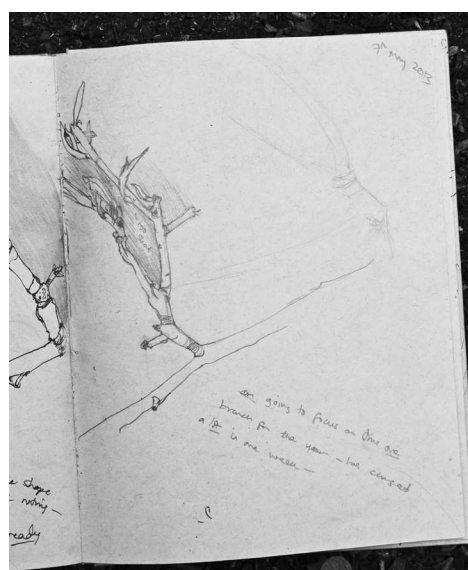 7th May 2013
going to focus on this one
branch for the year - has changed
a lot in one week -
e shape
ready